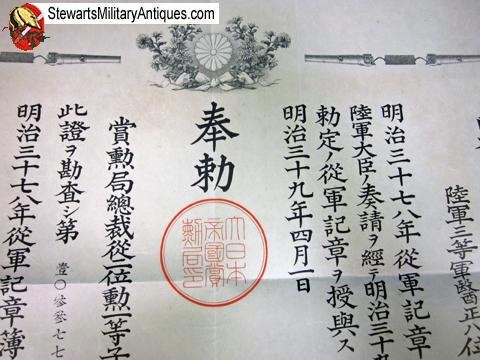 StewartsMilitaryAntiques.com
陸軍三等軍醫正八位
明治三十七八年從軍記章
陸軍大臣ノ奏請ヲ經テ明治三十九
勅定ノ從軍記章ヲ授與ス
明治三十九年四月一日
奉勅
大日本
帝國賞
勲局印
賞勲局總裁從二位勲一等子
此證ヲ勘査シ第壹〇參參七七
明治三十七八年從軍記章簿